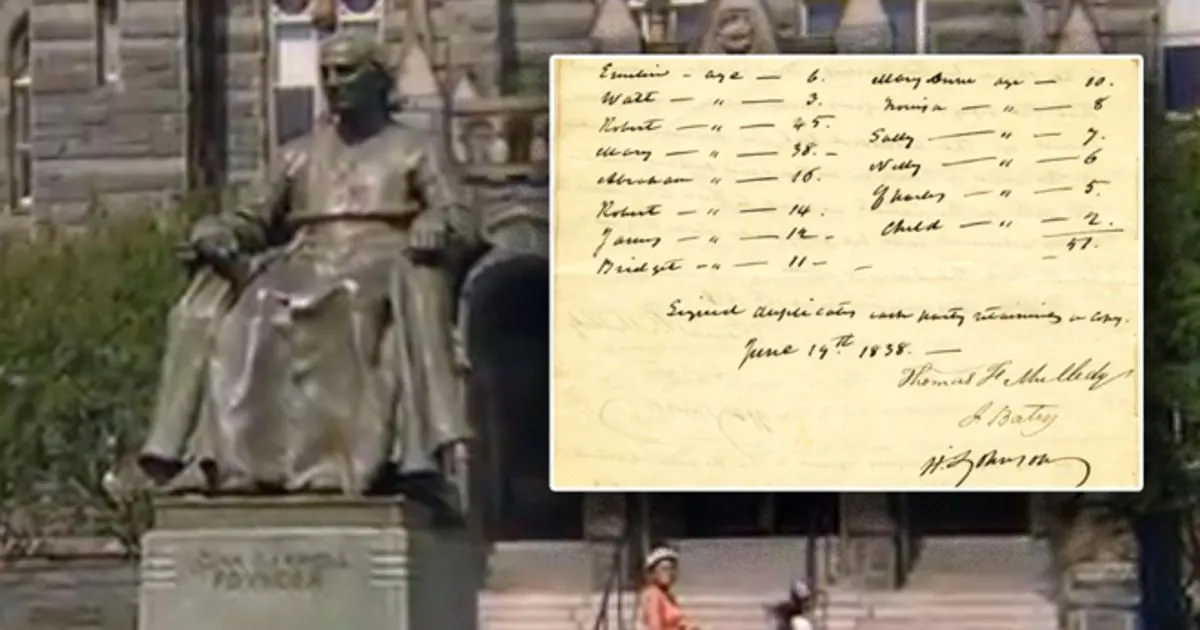 JOHN CARROLL
FOUNDER
Emeline - age — 6.
Watt — " — 3.
Robert — " — 45.
Mary — " — 38. -
Abraham " — 16.
Robert — " — 14.
James — " — 12 -
Bridget - " — 11 - -
Mary Anne age — 10.
Louisa — " — 8
Sally — " — 7.
Nelly — " — 6
Charles — " — 5.
Child — " — 2.
51.
Signed duplicates each party retaining a copy.
June 19th 1838. —
Thomas F. Mulledy
J. Batey
H. Johnson